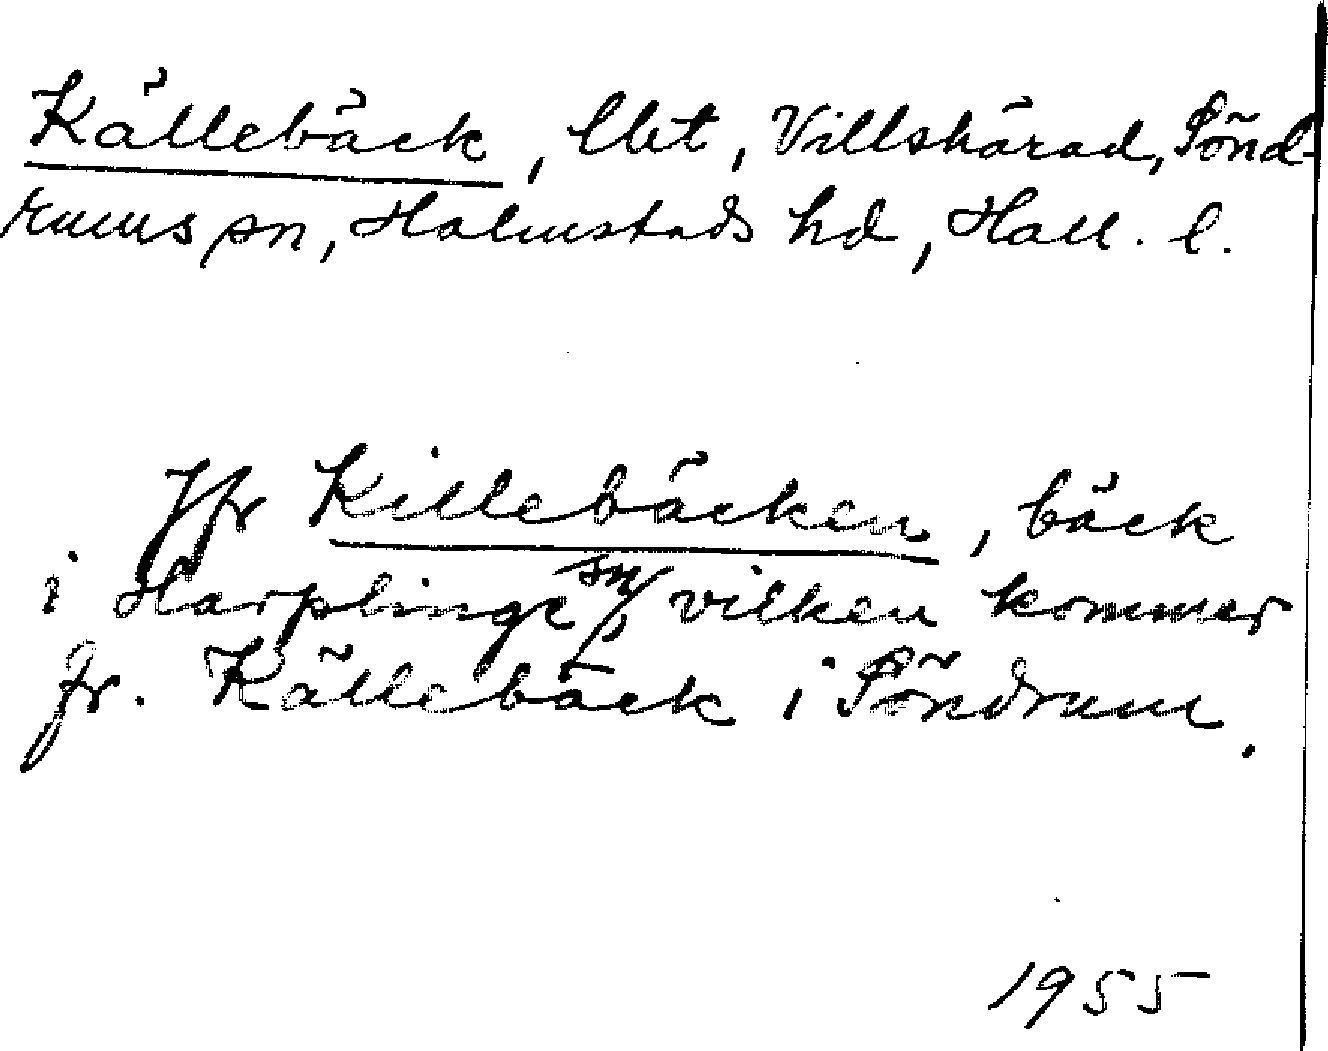 Källebäck, lht, Villshärad, Sönd-
rums sn, Halmstads hd, Hall. l.
Jfr Killebäcken, bäck
i Harplinge sn, vilken kommer
fr. Källebäck i Söndrum.
1955